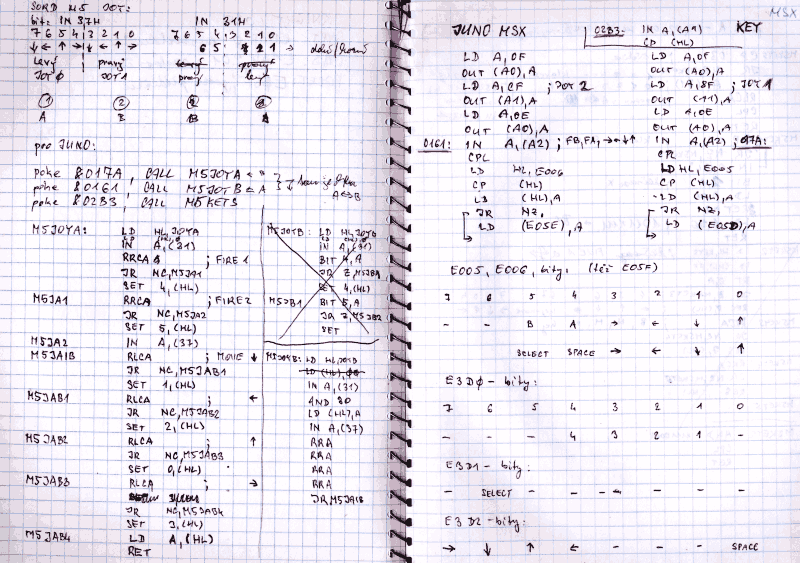 SORD M5 JOY:
bit: IN 37H IN 31H
7 6 5 4 3 2 1 0 7 6 5 4 3 2 1 0
↓ ← ↑ → ↓ ← ↑ → 6 5 2 1 → dolní/horní
levý pravý levý pravý
JOY0 JOY1 pravý levý
① ② ② ①
A B B A
pro JUNO:
poke &017A, CALL M5JOYA
poke &0161, CALL M5JOYB A
poke &02B3, CALL M5KEYS A↔B
M5JOYA: LD HL,JOYA
IN A,(31)
RRCA ; FIRE 1
JR NC,M5JA1
SET 4,(HL)
M5JA1 RRCA ; FIRE2
JR NC,M5JA2
SET 5,(HL)
M5JA2 IN A,(37)
M5JA1B RLCA ; MOVE ↓
JR NC,M5JAB1
SET 1,(HL)
M5JAB1 RLCA ; ←
JR NC,M5JAB2
SET 2,(HL)
M5JAB2 RLCA ; ↑
JR NC,M5JAB3
SET 0,(HL)
M5JAB3 RLCA ; →
JR NC,M5JAB4
SET 3,(HL)
M5JAB4 LD A,(HL)
RET
M5JOYB: LD HL,JOYB
IN A,(31)
BIT 4,A
JR Z,M5JBA
SET 4,(HL)
M5JB1 BIT 5,A
JR Z,M5JB2
SET
M5JOYB: LD HL,JOYB
LD (HL),00
IN A,(31)
AND 30
LD (HL),A
IN A,(37)
RRA
RRA
RRA
RRA
JR M5JA1B
MSX
JUNO MSX 02B3: IN A,(A9) KEY
CP (HL)
LD A,0F LD A,0F
OUT (A0),A OUT (A0),A
LD A,CF ; JOY 2 LD A,8F ; JOY 1
OUT (A1),A OUT (A1),A
LD A,0E LD A,0E
OUT (A0),A OUT (A0),A
0161: IN A,(A2) ; FB,FA,→←↓↑ IN A,(A2) ; 017A:
CPL CPL
LD HL,E006 LD HL,E005
CP (HL) CP (HL)
LD (HL),A LD (HL),A
JR NZ, JR NZ,
LD (E05E),A LD (E05D),A
E005, E006, bity: (též E05F)
7 6 5 4 3 2 1 0
- - B A → ← ↓ ↑
SELECT SPACE → ← ↓ ↑
E3D0 - bity:
7 6 5 4 3 2 1 0
- - - 4 3 2 1 -
E3D1 - bity:
- SELECT - - - - - -
E3D2 - bity:
→ ↓ ↑ ← - - - SPACE